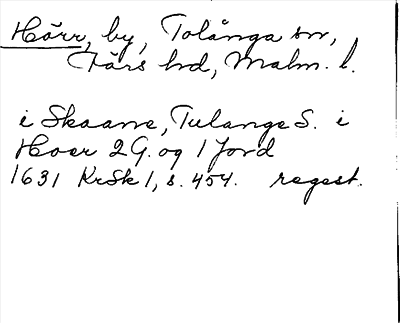 Hörr, by, Tolånga sn,
Färs hd, Malm. l.
i Skaane, Tulange S. i
Hoer 2 G. og 1 Jord
1631 KrSk 1, s. 454. regest.